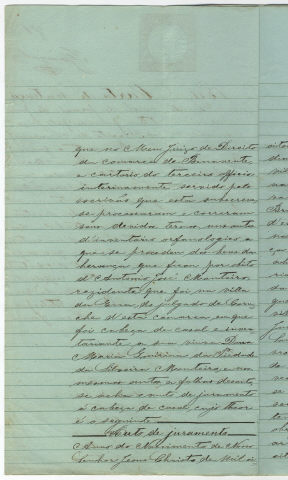 que no Meu Juizo de Direito
da comarca de Benavente
e cartorio do terceiro officio
interinamente servido pelo
escrivão que esta subscreve
se processaram e correram
seus devidos termos uns autos
d'inventario orfanologico a
que se procedeu dos bens da
herança que ficou por obito
d'Antonio José Monteiro
rezidente que foi na villa
da Erra, do julgado de Coru-
che d'esta comarca, em que
foi cabeça de casal e inven-
tariante, a sua viuva Dona
Maria da Piedade
da Silveira Monteiro e nos
mesmos autos a folhas
se acha o auto de juramento
á cabeça de casal, cujo theor
é o seguinte
Auto de juramento
Anno do Nascimento de Nosso
Senhor Jesus Christo de mil oi